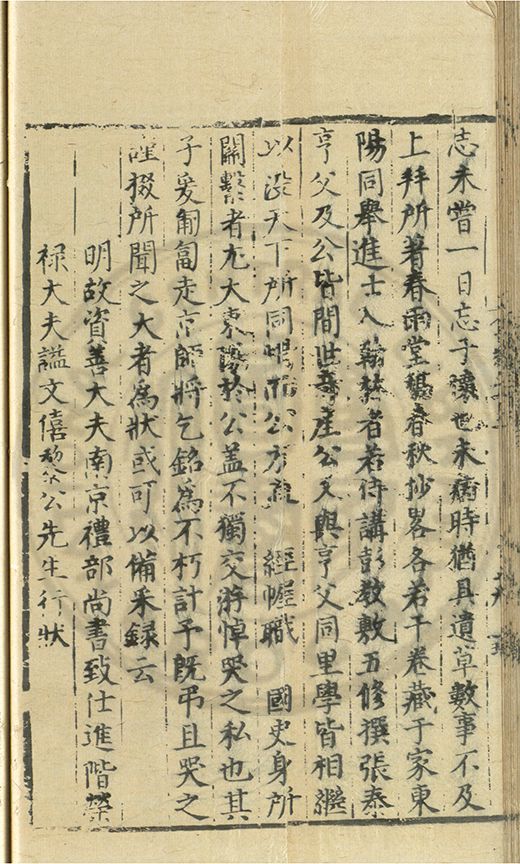 志未嘗一日忘予懷也未病時猶具遺草數事不及
上拜所著春雨堂藁春秋抄畧各若干卷藏于家東
陽同舉進士入翰林者若侍講彭敎敷五修撰張泰
亨父及公皆間世產公又與亨父同里學皆相繼
以沒天下所同惜而公方 經幄職 國史身所
關繫者尤大東陽於公蓋不獨交游悼哭之私也其
子爰匍匐走京師將乞銘爲不朽計予既弔且哭之
謹掇所聞之大者爲狀或可以備采録云
明故資善大夫南京禮部尚書致仕進階榮
禄大夫謚文僖黎公先生行狀